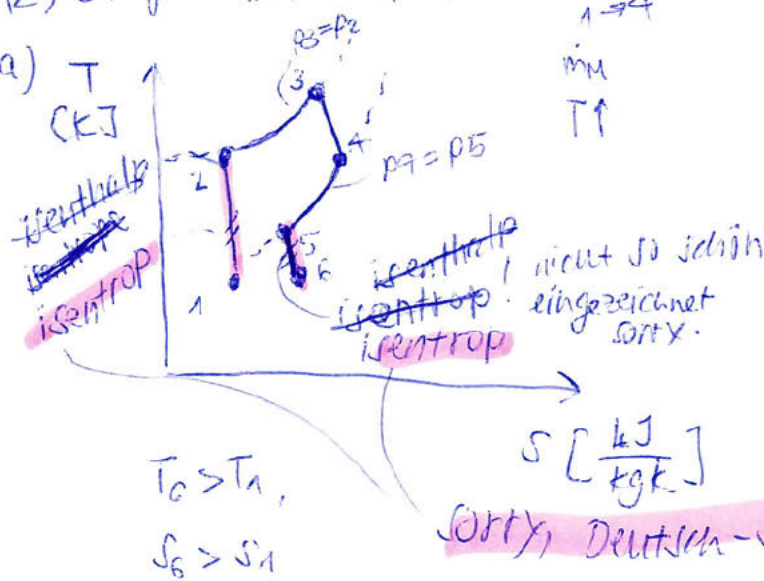 a) T
[K]
p3=p2
3
4
2
p4 = p5
5
6
1
ṁM
T↑
isenthalp
isentrop
isentrop
isenthalp
isentrop
isentrop
! nicht so schön
eingezeichnet
sorry.
S [kJ/kgK]
T6 > T1,
S6 > S1
sorry, Deutsch-